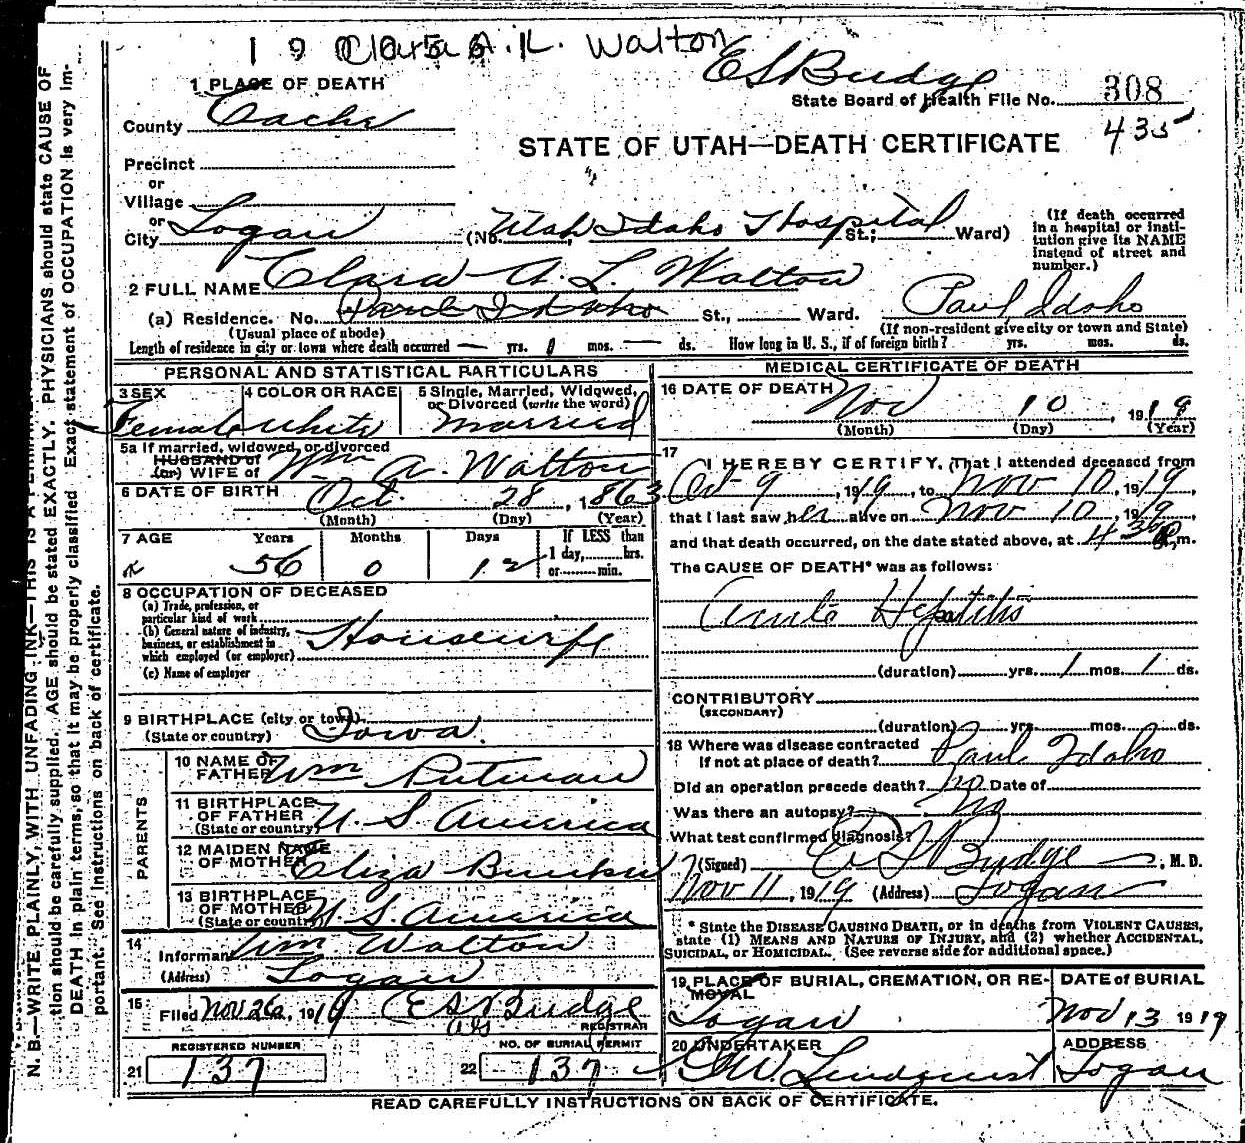 Clara A. L. Walton
E S Budge
1 PLACE OF DEATH
State Board of Health File No. 308
County Cache
435
STATE OF UTAH—DEATH CERTIFICATE
Precinct
or
Village
or
City Logan (No. Utah Idaho Hospital St.; Ward)
(If death occurred in a hospital or institution give its NAME instead of street and number.)
2 FULL NAME Clara A. L. Walton
(a) Residence. No. Paul Idaho St., Ward. Paul, Idaho
(Usual place of abode) (If non-resident give city or town and State)
Length of residence in city or town where death occurred — yrs. 1 mos. — ds. How long in U. S., if of foreign birth? yrs. mos. ds.
PERSONAL AND STATISTICAL PARTICULARS
3 SEX 4 COLOR OR RACE 5 Single, Married, Widowed, or Divorced (write the word)
Female White Married
5a If married, widowed, or divorced
HUSBAND of
(or) WIFE of Wm A. Walton
6 DATE OF BIRTH Oct 28, 1863
(Month) (Day) (Year)
7 AGE Years Months Days If LESS than
1 day, hrs.
or min.
56 0 12
8 OCCUPATION OF DECEASED
(a) Trade, profession, or
particular kind of work
(b) General nature of industry,
business, or establishment in
which employed (or employer)
Housewife
(c) Name of employer
9 BIRTHPLACE (city or town)
(State or country) Iowa.
PARENTS
10 NAME OF
FATHER Wm Putman
11 BIRTHPLACE
OF FATHER
(State or country) U. S. America
12 MAIDEN NAME
OF MOTHER Eliza
13 BIRTHPLACE
OF MOTHER
(State or country) U. S. America
14
Informant Wm Walton
(Address) Logan
15
Filed Nov 26, 1919 E S Budge
REGISTRAR
REGISTERED NUMBER NO. OF BURIAL PERMIT
21 137 22 137
MEDICAL CERTIFICATE OF DEATH
16 DATE OF DEATH Nov 10, 1919
(Month) (Day) (Year)
17
I HEREBY CERTIFY, That I attended deceased from
Oct 9, 1919, to Nov 10, 1919,
that I last saw her alive on Nov 10, 1919,
and that death occurred, on the date stated above, at 4 30 P m.
The CAUSE OF DEATH* was as follows:
Acute Hepatitis
(duration) yrs. 1 mos. 1 ds.
CONTRIBUTORY
(SECONDARY)
(duration) yrs. mos. ds.
18 Where was disease contracted
if not at place of death? Paul Idaho
Did an operation precede death? no Date of
Was there an autopsy? no
What test confirmed diagnosis?
(Signed) E S Budge, M. D.
Nov 11, 1919 (Address) Logan
* State the DISEASE CAUSING DEATH, or in deaths from VIOLENT CAUSES,
state (1) MEANS AND NATURE OF INJURY, and (2) whether ACCIDENTAL,
SUICIDAL, or HOMICIDAL. (See reverse side for additional space.)
19 PLACE OF BURIAL, CREMATION, OR RE-
MOVAL
DATE of BURIAL
Logan Nov 13 1919
20 UNDERTAKER ADDRESS
G W. Lindquist Logan
READ CAREFULLY INSTRUCTIONS ON BACK OF CERTIFICATE.
tion should be carefully supplied. AGE should be stated EXACTLY. PHYSICIANS should state CAUSE OF
DEATH in plain terms, so that it may be properly classified. Exact statement of OCCUPATION is very im-
portant. See Instructions on back of certificate.
N. B.—WRITE PLAINLY, WITH UNFADING INK—THIS IS A